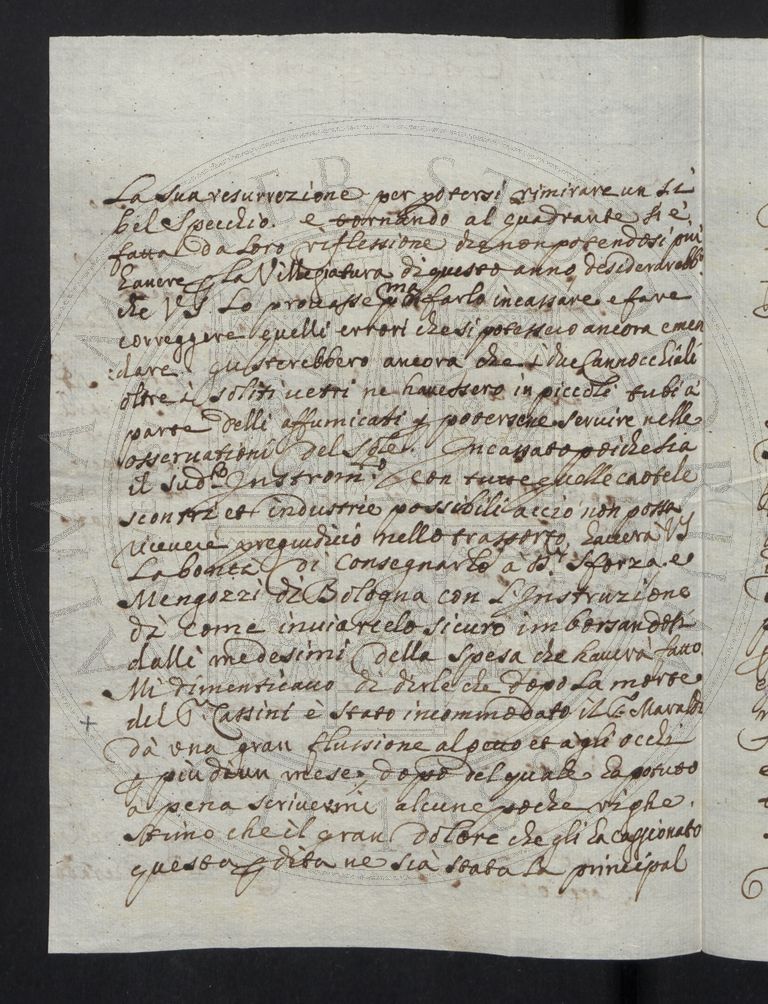 La sua resurrezione per potersi rimirare un sì
bel Specchio. e tornando al quadrante si è
fatta da Loro riflessione che non potendosi più
havere p la Villegiatura di questo anno desiderarebb.º
che VS Lo procasse pma farlo incassare e fare
correggere quelli errori che si potessero ancora emen
dare. gusterebbero ancora che i due Cannocchiali
oltre à soliti vetri ne havessero in piccoli tubi à
parte delli affumicati p potersene servire nelle
osservationi del Sole. Incassato poi che sia
il sud.º Instrom.to con tutte quelle cautele
scontri et industrie possibili acciò non possa
ricevere pregiudicio nello trasporto, haverà VS
La bontà di Consegnarlo à SS.ri Sforza e
Mengozzi di Bologna con L'Instruzione
dà come inviarcelo sicuro imborsandosi
dalli medesimi della spesa che haverà fatto
Mi dimenticavo di dirle che dopo La morte
del S.r Cassini è stato incommodato il S.r Maraldi
dà una gran flussione al petto et agli occhi
p più di un mese, dopo del quale hà potuto
a pena scrivermi alcune poche righe.
Stimo che il gran dolore che gli hà cagionato
questa pdita ne sià stata La principal